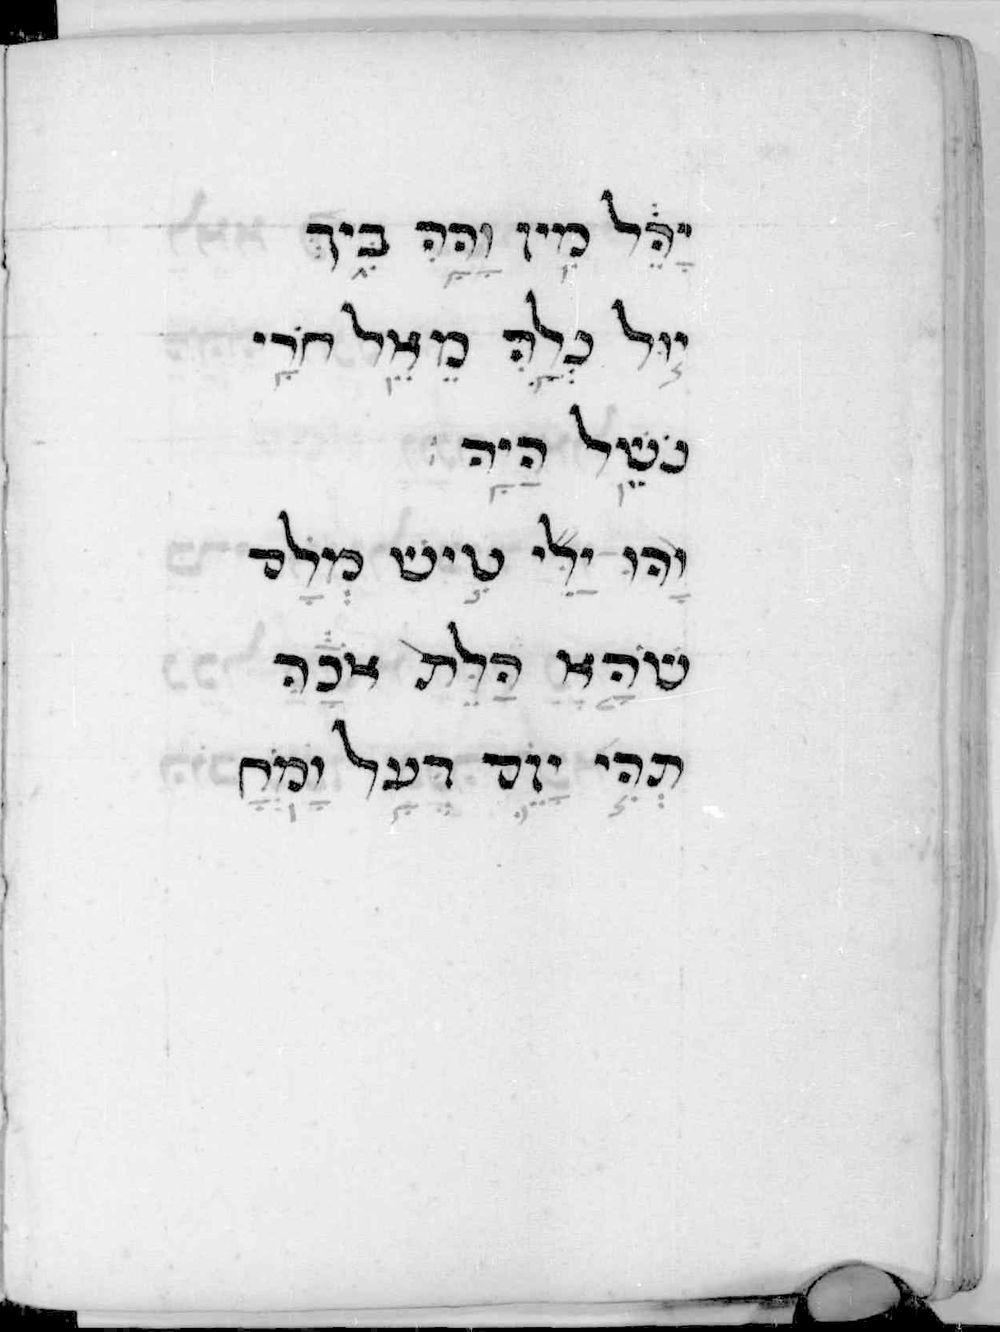 יהל מין והה ביך
יול כלה מאל חרי
כשל היה
והו ילי טיש מלס
שהא הלת אכה
תהי יוס רעל ומח